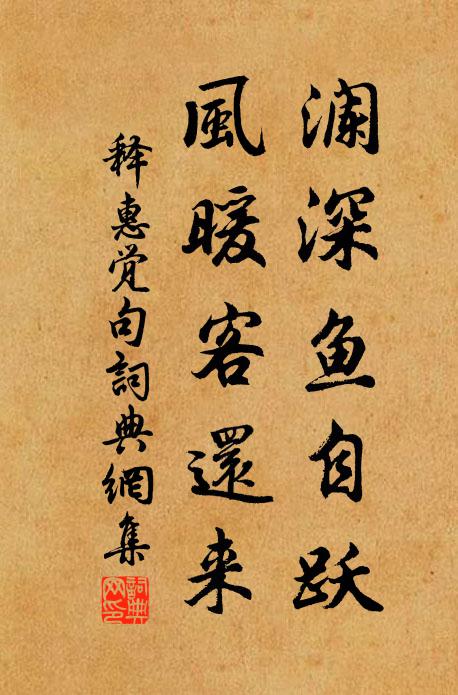 澜深鱼自跃
風暖客還来
释惠觉句詞典網集
詞典網印